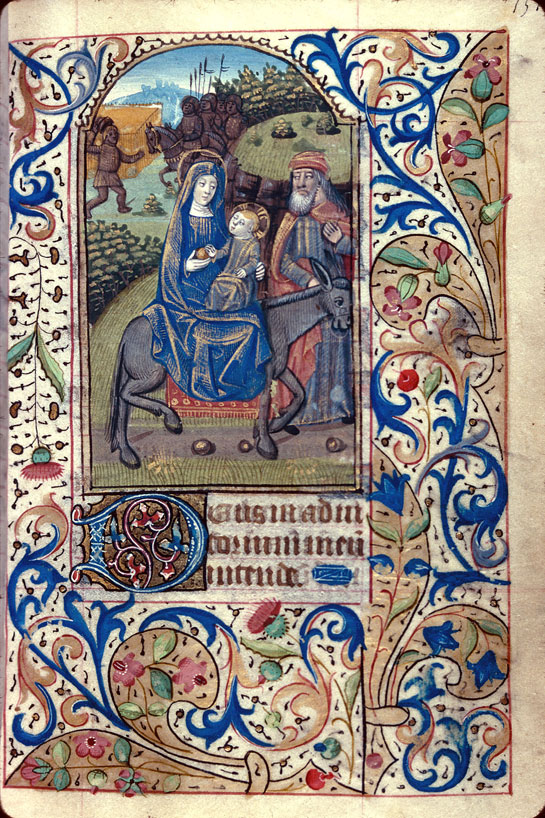 Deus in adiu
torium meu
intende